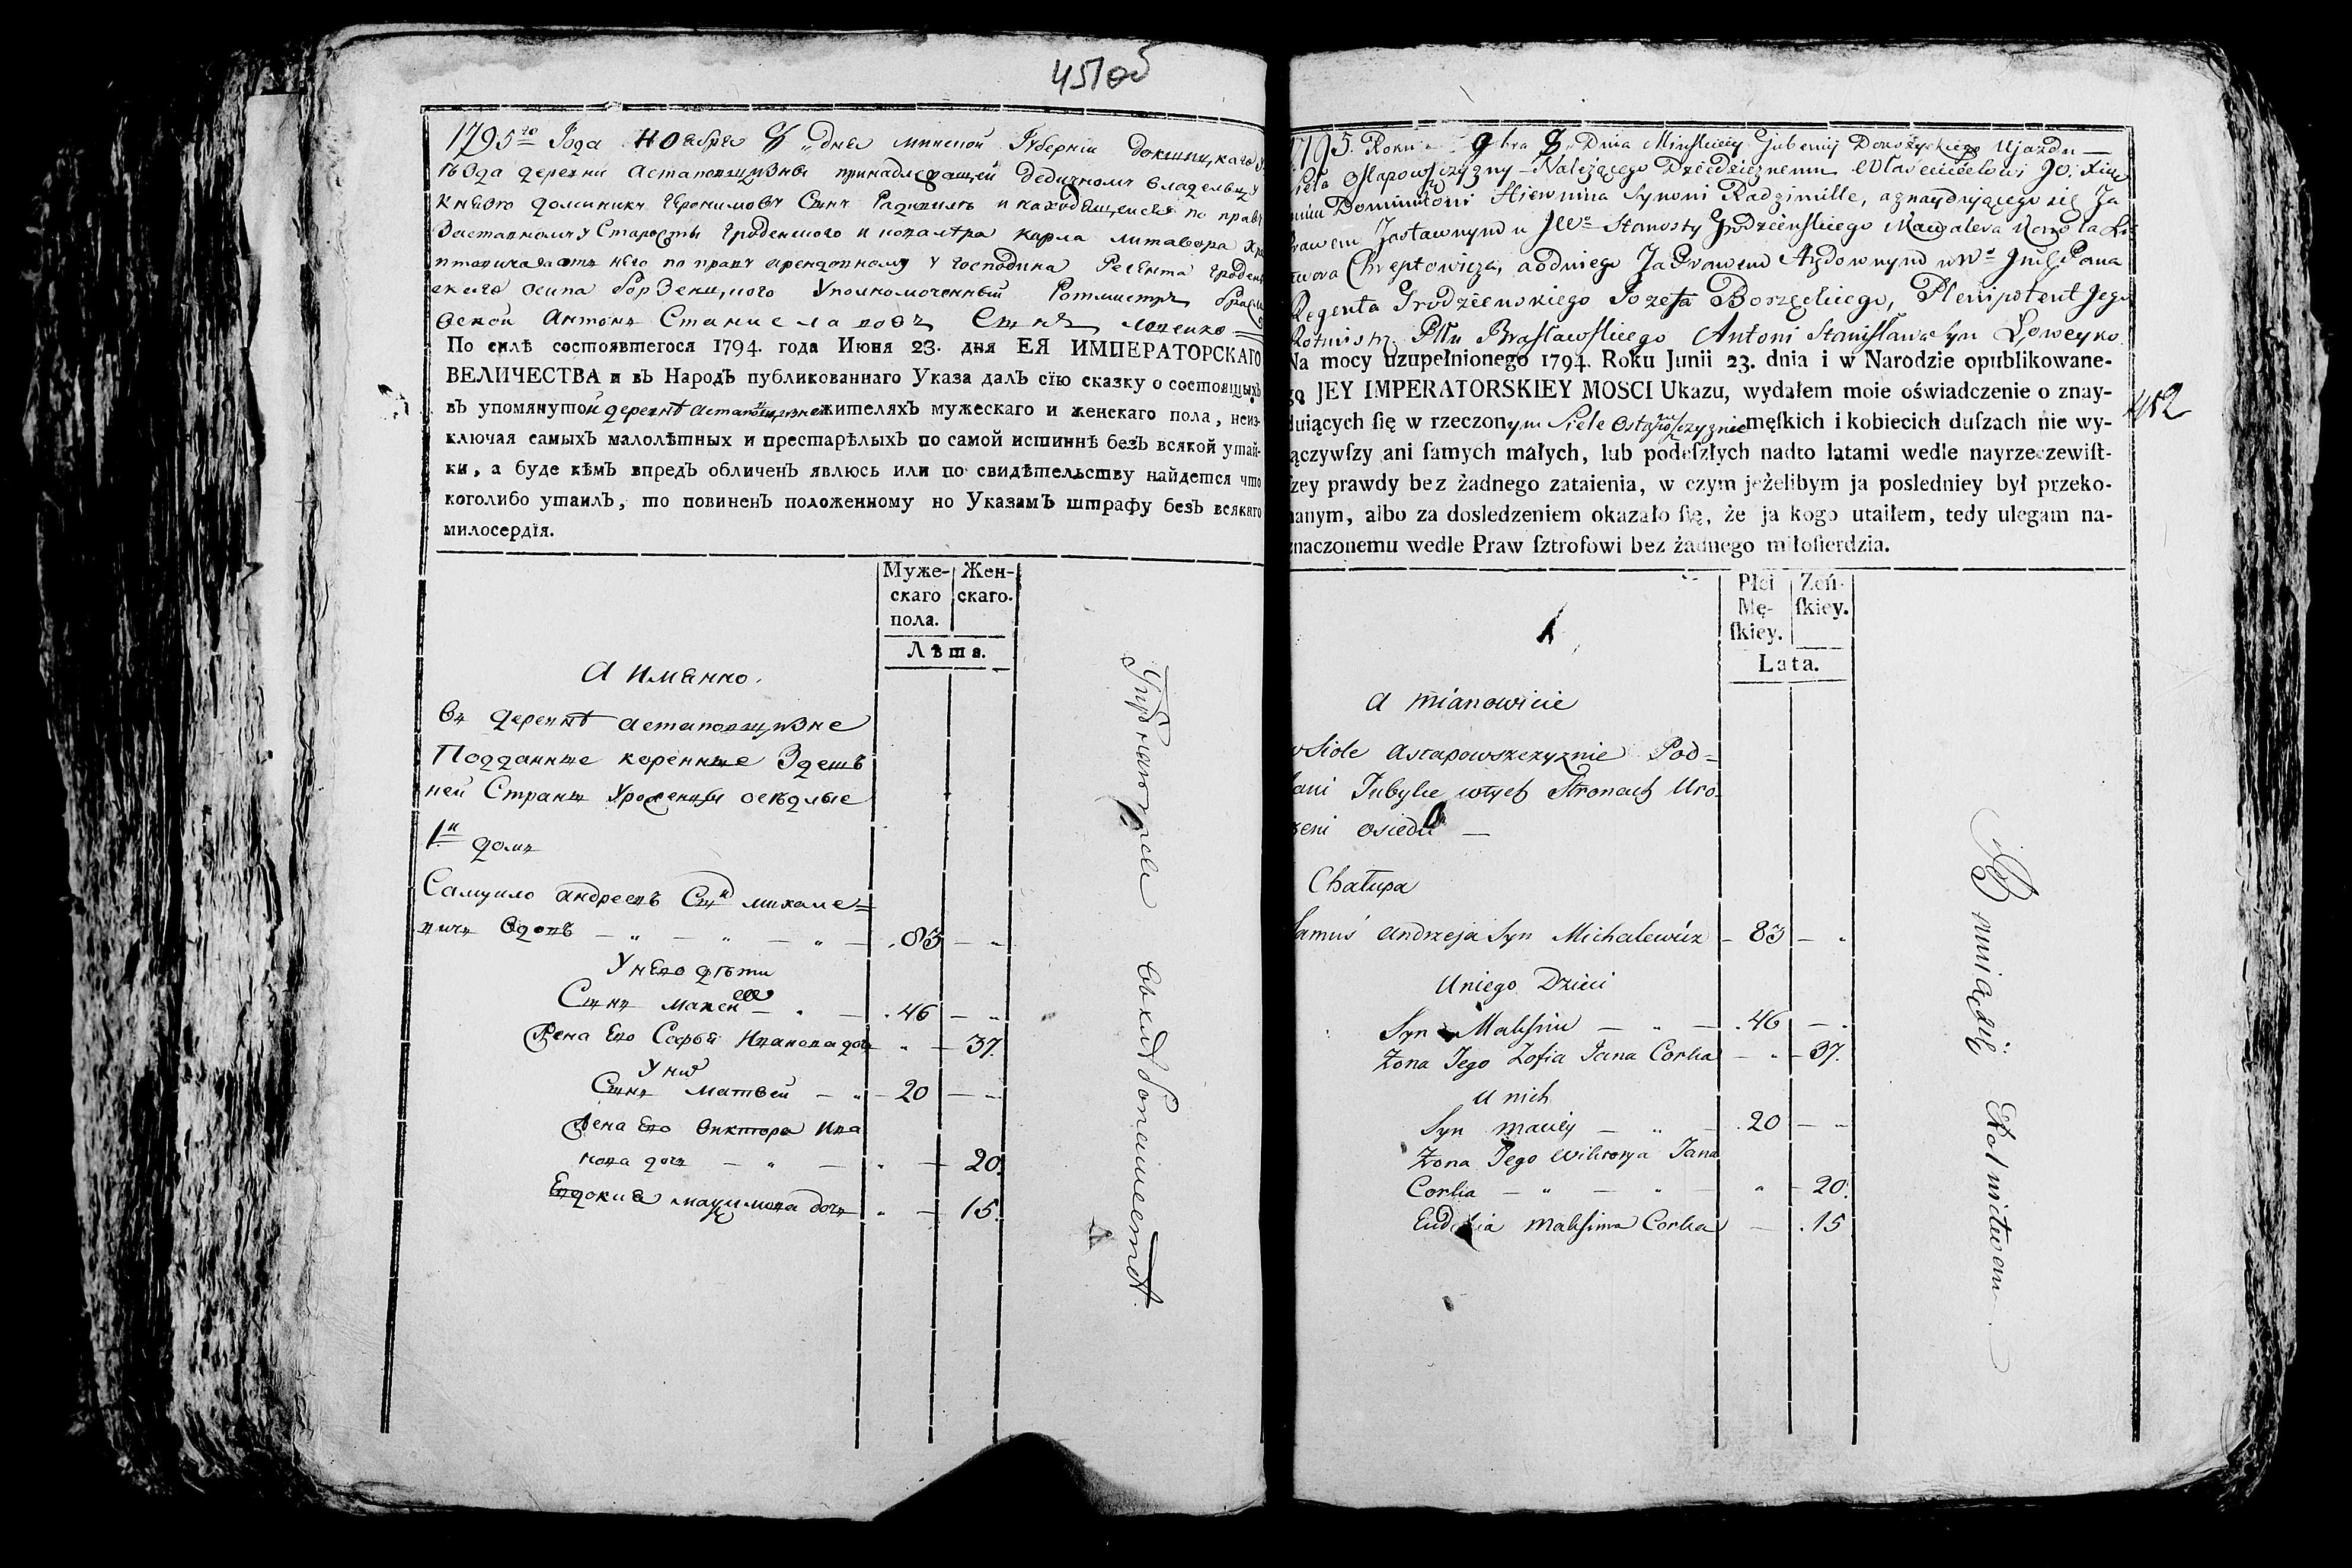 451об
1795го Года Ноября 8 дня минской Губернии докшицкаго у
ѣзда деревни Астаповщизны принадлежащей дедичному владельцу
князю доминику Геронимову Сыну Радзивилъ и находящейся по праву
Заставному у Старосты Гроденского и кавалера карла литавора Хре
птовича а отъ него по праву арендовному у господина Регента Гроден
ского осипа Борженцкого Уполномоченный Ротмистръ брасла
вской Антонъ Станиславовъ Сынъ
По силѣ состоявшегося 1794. года Июня 23. дня ЕЯ ИМПЕРАТОРСКАГО
ВЕЛИЧЕСТВА и въ Народъ публикованнаго Указа далъ сїю сказку о состоящыхъ
въ упомянутой деревнѣ Астаповщизне жителяхъ мужескаго и женскаго пола, неиз-
ключая самыхъ малолѣтныхъ и престарѣлыхъ по самой истиннѣ безъ всякой утай-
ки, а буде кѣмъ впредъ обличенъ явлюсь или по свидѣтельству найдется что
коголибо утаилъ, то повиненъ положенному по Указамъ штрафу безъ всякаго
милосердїя.
Муже-
скаго
пола.
Жен-
скаго.
Лѣта.
А имянно.
въ деревнѣ Астаповщизне
Подданные коренные Здешъ
ней Страны Уроженцы оседлые
1й домъ
Самуило андреевъ Сынъ михале=
вичъ Вдовъ — 83 —
У него дѣти
Сынъ — 46 —
Жена Его Софья Иванова дочь — 37.
У них
Сынъ Матвей — 20 —
Жена Его Виктора Ива
нова дочь — 20.
Евдокия максимова дочь — 15.
1795. Roku 9bra 8 Dnia Minskiey Gubernij Dokszyckiego Ujazdu —
Sieła Ostapowszczyzny — Należącego Dziedzicznemu Właścicielowi Jo: Xiąż
niu Dominikowi Hieronima Synowi Radziwille, a znayduiącego się Za
Prawem Zastawnym u JW Starosty Grodzieńskiego Kawalera Karola Li
tawora Chreptowicza, a od niego Za Prawem Arędownym u W JmęPana
Regenta Grodzieńskiego Jozefa Borzęckiego, Plenipotent Jego
Rotmistrz Pttu Brasławskiego Antoni Stanisława Syn Łoweyko
Na mocy uzupełnionego 1794. Roku Junii 23. dnia i w Narodzie opublikowane-
go JEY IMPERATORSKIEY MOSCI Ukazu, wydałem moie oświadczenie o znay-
duiących ſię w rzeczonym Siele Ostapowszczyznie męſkich i kobiecich duſzach nie wy-
łączywſzy ani ſamych małych, lub podeſzłych nadto latami wedle nayrzeczewiſt-
ſzey prawdy bez żadnego zataienia, w czym jeżelibym ja posledniey był przeko-
nanym, albo za dosledzeniem okazało ſię, że ja kogo utaiłem, tedy ulegam na-
znaczonemu wedle Praw ſztrofowi bez żadnego miłoſierdzia.
452
Płci
Mę-
ſkiey.
Zeń-
ſkiey.
Lata.
a mianowicie
w Siole Astapowszczyznie Pod=
dani Jubylce wtych Stronach Uro
dzeni osiedli —
Chałupa
Samuś Andrzeja Syn Michalewicz — 83 —
U niego Dzieci
Syn Maksim — 46 —
Żona Jego Zofia Jana Corka — 37.
U nich
Syn Maciey — 20 —
Żona Jego Wiktorya Jana
Corka — 20.
Eudokia Maksima Corka — 15